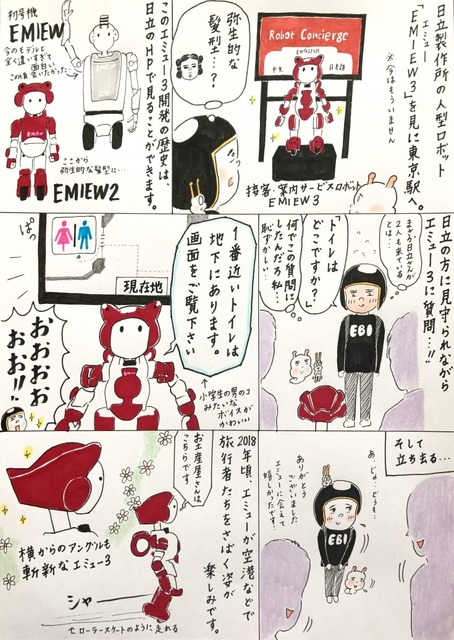 日立製作所の人型ロボット
「EMIEW3」を見に東京駅へ。
エミュー
※今はもういません
Robot Concierge
ENGLISH
中文
日本語
接客・案内サービスロボット
EMIEW3
弥生的な
髪型…?
このエミュー3開発の歴史は、
日立のHPで見ることができます。
初号機
EMIEW
今のモデルと
全く違いすぎて
面白い
この頃会いたかった
ここから
弥生的な髪型に…
EMIEW2
日立の方に見守られながら
エミュー3に質問…!!
まさか日立さんが
2人も来ている
とは…
「トイレは
どこですか?」
何でこの質問に
したんだろ私…
恥ずかしい…
EBI
1番近いトイレは
地下にあります。
画面をご覧下さい
小学生の男のコ
みたいな
ボイスが
かわいい
現在地
ぱっ
おおおお
おお!!
そして
立ち去る…
あ、じゃ、どうも…
ありがとう
ございました
エミューに会えて
嬉しかったです…
EBI
2018年頃、エミューが空港などで
旅行者たちをさばく姿が
楽しみです。
お土産屋さんは
こちらです
横からのアングルも
斬新なエミュー3
シャー
ローラースケートのように走れる